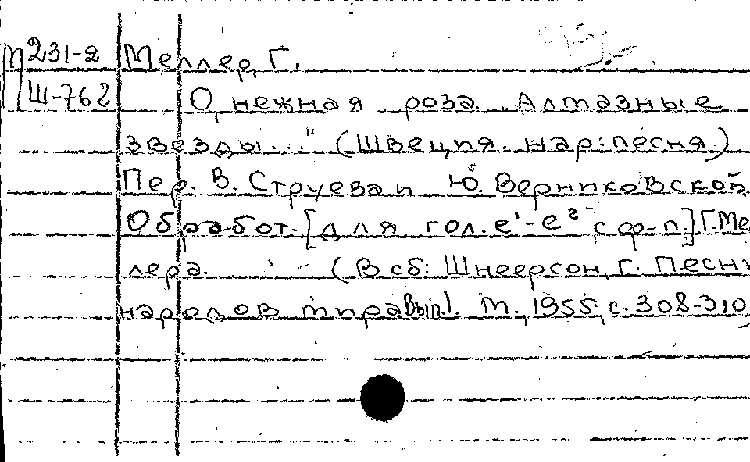 П 231-2 Меллер, Г.
Ш-762 О, нежная роза. Алмазные
звезды..." (Швеция. нар. песня)
Пер. В. Струева и Ю. Верниковской.
Обработ. [для гол. e¹-e² с ф-п.] Г. Ме
лера. (В сб: Шнеерсон, Г. Песни
народов мира Вып 1. М., 1955, с. 308-310